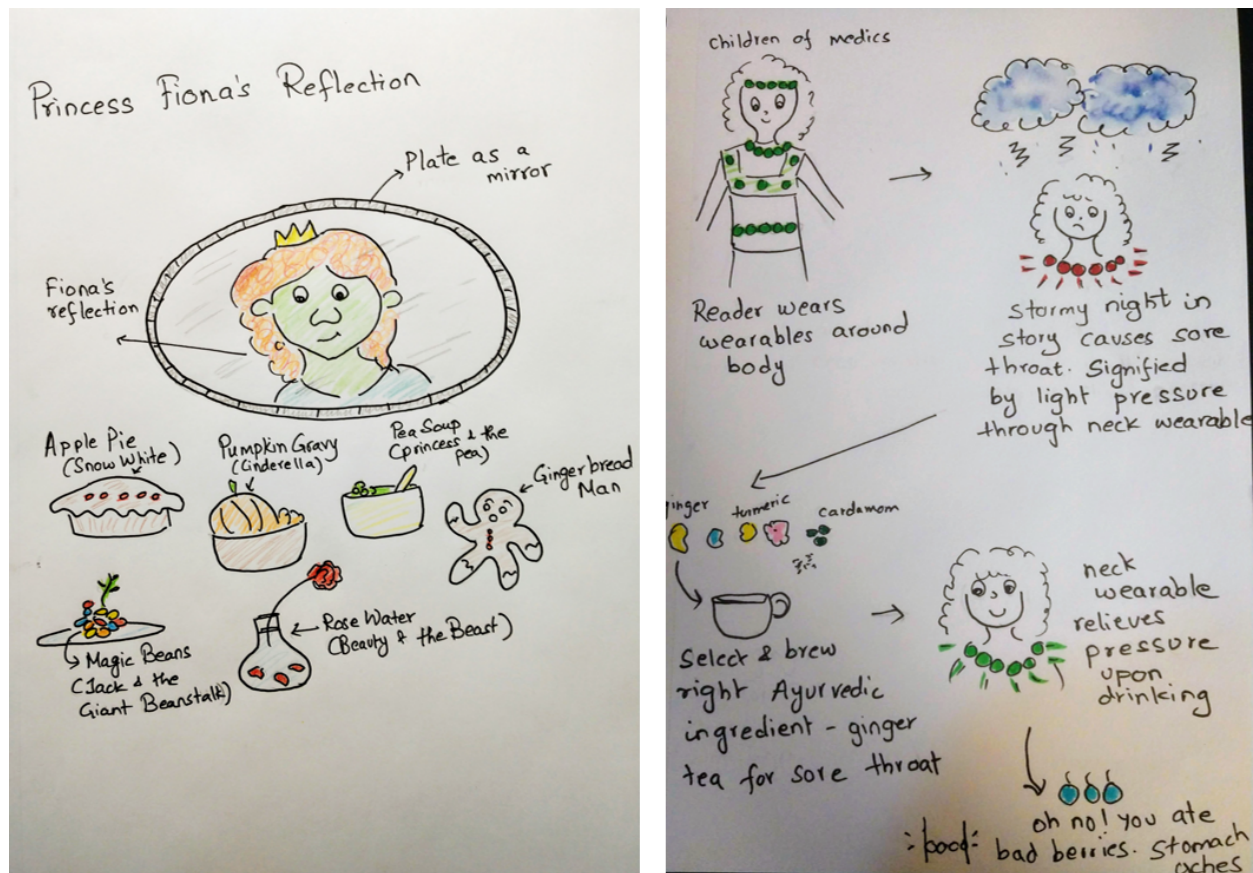 Princess Fiona's Reflection
Plate as a
mirror
Fiona's
reflection
Apple Pie
(Snow White)
Pumpkin Gravy
(Cinderella)
Pea Soup
(princess & the
pea)
Gingerbread
Man
Magic Beans
(Jack & the
Giant Beanstalk)
Rose Water
(Beauty & the Beast)
children of medics
Reader wears
wearables around
body
stormy night in
story causes sore
throat. Signified
by light pressure
through neck wearable
ginger
turmeric
cardamom
Select & brew
right Ayurvedic
ingredient - ginger
tea for sore throat
neck
wearable
relieves
pressure
upon
drinking
oh no! you ate
bad berries. Stomach
aches